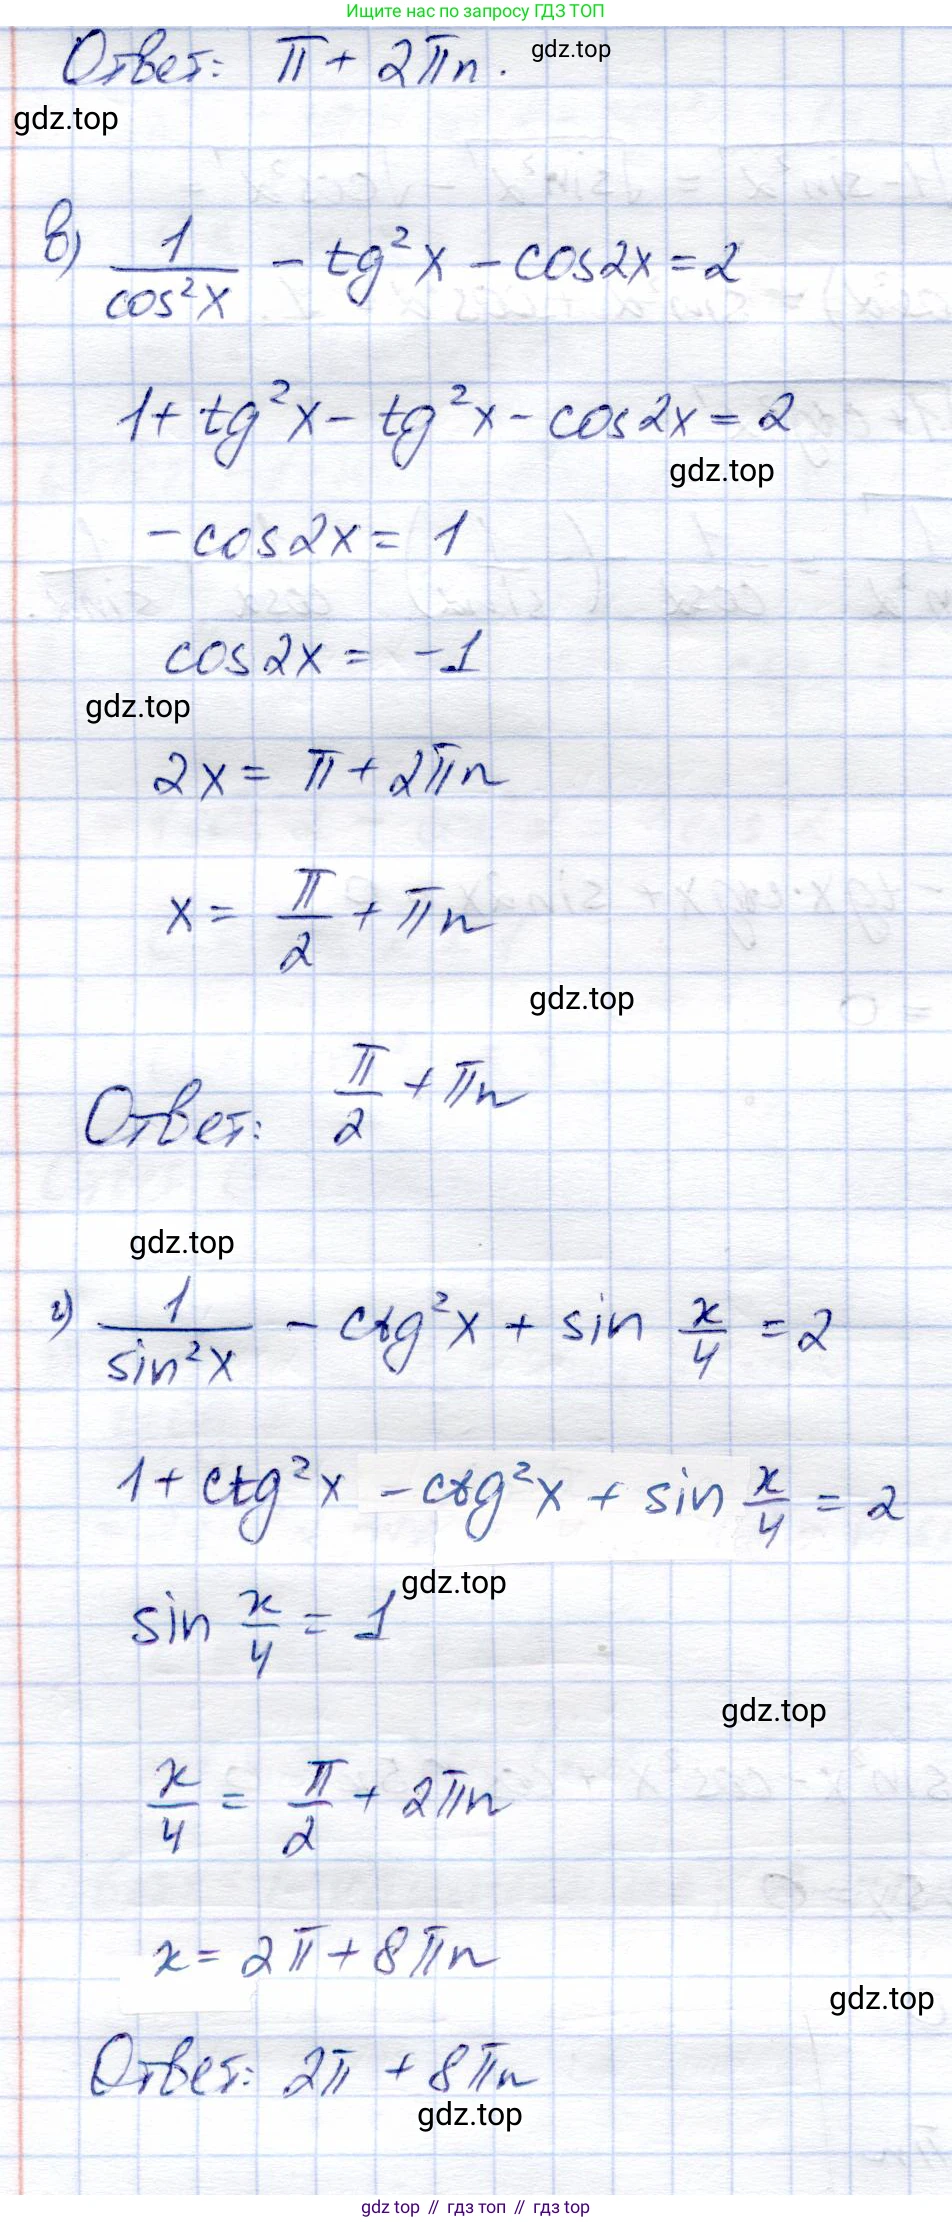 Ищите нас по запросу ГДЗ ТОП
Ответ: π + 2πn.
gdz.top
gdz.top
в) 1/cos²x - tg²x - cos2x = 2
1 + tg²x - tg²x - cos2x = 2
gdz.top
-cos2x = 1
cos2x = -1
gdz.top
2x = π + 2πn
x = π/2 + πn
gdz.top
Ответ: π/2 + πn
gdz.top
г) 1/sin²x - ctg²x + sin x/4 = 2
1 + ctg²x - ctg²x + sin x/4 = 2
gdz.top
sin x/4 = 1
gdz.top
x/4 = π/2 + 2πn
x = 2π + 8πn
gdz.top
Ответ: 2π + 8πn
gdz.top
gdz top // гдз топ // гдз top